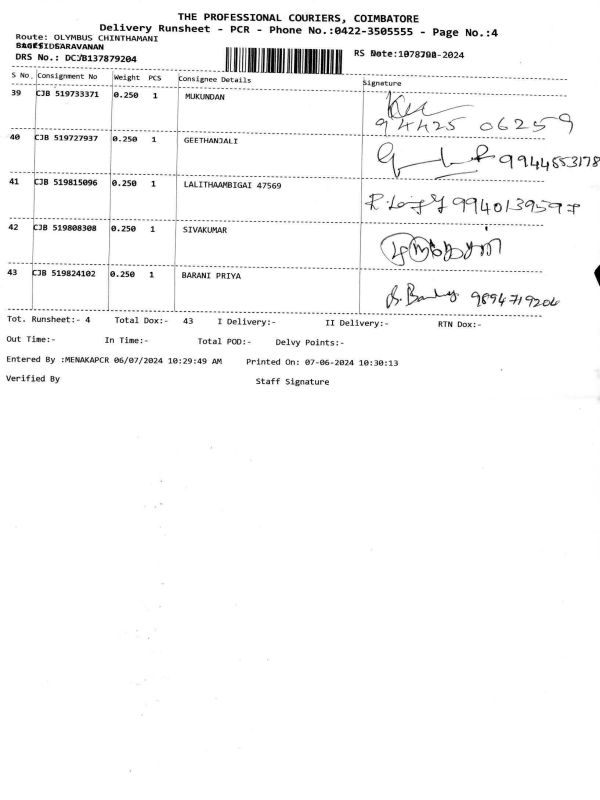 THE PROFESSIONAL COURIERS, COIMBATORE
Delivery Runsheet - PCR - Phone No.:0422-3505555 - Page No.:4
Route: OLYMBUS CHINTHAMANI
SARAVANAN
DRS No.: DCJB137879204
RS -2024
S No. Consignment No Weight PCS Consignee Details Signature
39 CJB 519733371 0.250 1 MUKUNDAN
94425 06259
40 CJB 519727937 0.250 1 GEETHANJALI
9944553178
41 CJB 519815096 0.250 1 LALITHAAMBIGAI 47569
994013959
42 CJB 519808308 0.250 1 SIVAKUMAR
43 CJB 519824102 0.250 1 BARANI PRIYA
9894719204
Tot. Runsheet:- 4 Total Dox:- 43 I Delivery:- II Delivery:- RTN Dox:-
Out Time:- In Time:- Total POD:- Delvy Points:-
Entered By :MENAKAPCR 06/07/2024 10:29:49 AM Printed On: 07-06-2024 10:30:13
Verified By Staff Signature